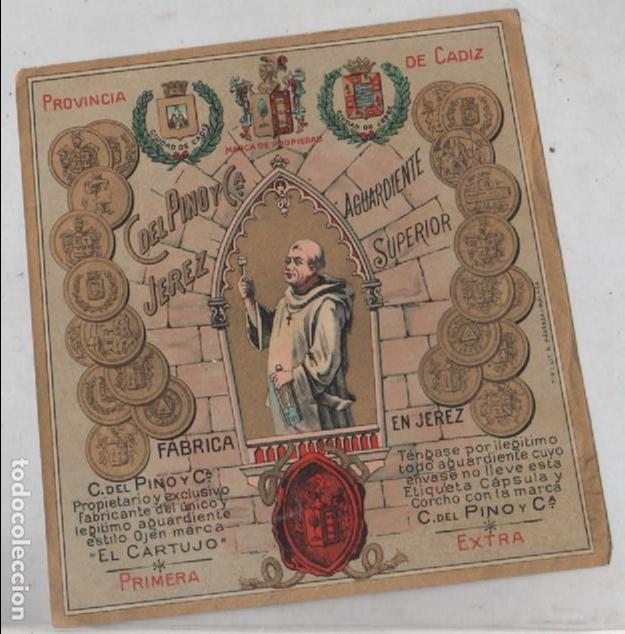 PROVINCIA
DE CADIZ
CIUDAD DE CADIZ
MARCA DE PROPIEDAD
CIUDAD DE JEREZ
C. DEL PINO Y Cª
JEREZ
AGUARDIENTE
SUPERIOR
FABRICA
EN JEREZ
C. DEL PINO Y Cª
Propietario y exclusivo
fabricante del único y
legitimo aguardiente
estilo Ojén marca
"EL CARTUJO"
PRIMERA
Téngase por ilegitimo
todo aguardiente cuyo
envase no lleve esta
Etiqueta Cápsula y
Corcho con la marca
C. DEL PINO Y Cª
EXTRA
todocoleccion